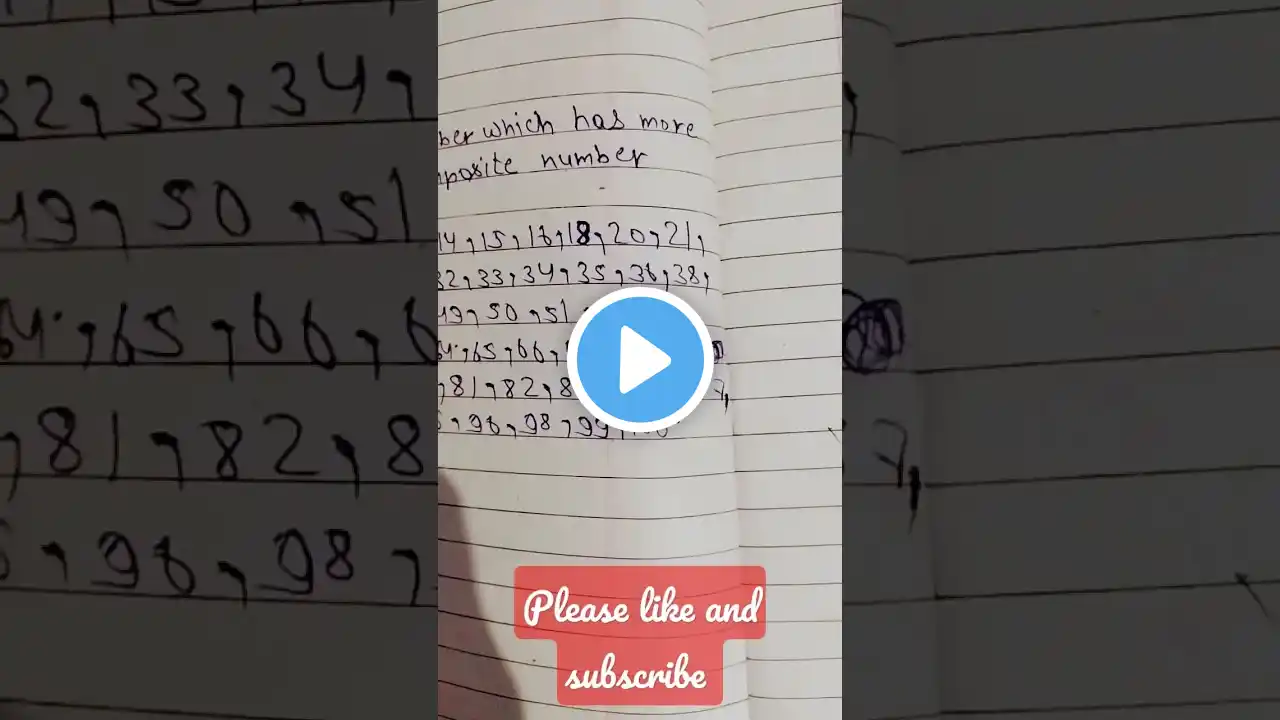 ber which has more
mposite number
14,15,16,18,20,21,
32,33,34,35,36,38,
49,50,51
64,65,66,
,81,82,8 7,
,96,98,99,
Please like and
subscribe